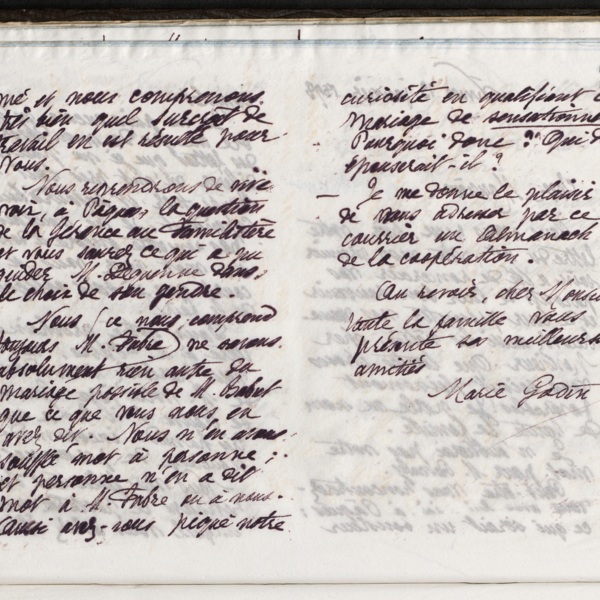 mé et nous comprenons
très bien quel surcroît de
travail en est résulté pour
vous.
Nous reprendrons de vive
voix, à Pâques, la question
de la Gérance au Familistère
et vous saurez ce qui a pu
guider M. Dequenne dans
le choix de son gendre.
Nous (ce nous comprend
toujours M. Fabre) ne savons
absolument rien autre du
mariage possible de M. Babet
que ce que vous nous en
avez dit. Nous n'en avons
soufflé mot à personne ;
et personne n'en a dit
mot à M. Fabre ou à nous.
Aussi avez-vous piqué notre
curiosité en qualifiant
mariage de sensationne
Pourquoi donc ? Qui d
épouserait-il ?
— Je me donne le plaisir
de vous adresser par ce
courrier un Almanach
de la coopération.
Au revoir, cher Monsie
toute la famille vous
présente ses meilleures
amitiés
Marie Godin